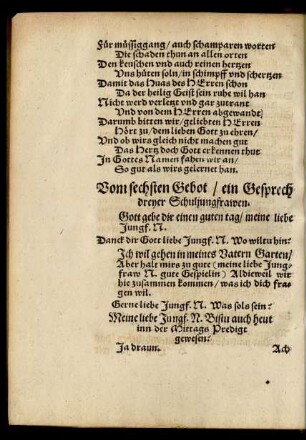 Für müssiggang / auch schamparen worten
Die schaden thun an allen orten
Den keuschen vnd auch reinen hertzen
Vns hüten soln / in schimpff vnd schertzen
Damit das Huas des HErren schon
Da der heilig Geist sein ruhe wil han
Nicht werd verletzt vnd gar zutrant
Vnd von dem HErren abgewandt /
Darumb bitten wir / geliebten HErren
Hört zu / dem lieben Gott zu ehren /
Vnd ob wirs gleich nicht machen gut
Das Hertz doch Gott erkennen thut
In Gottes Namen fahen wir an /
So gut als wirs gelernet han.
Vom sechsten Gebot / ein Gesprech
dreyer Schuljungfrawen.
Gott gebe dir einen guten tag / meine liebe
Jungf. N.
Danck dir Gott liebe Jungf. N. Wo wiltu hin?
Ich wil gehen in meines Vatern Garten /
Aber halt mirs zu gute (meine liebe Jung-
fraw N. gute Gespielin) Aldieweil wir
hie zusammen kommen / was ich dich fra-
gen wil.
Gerne liebe Jungf. N. Was sols sein?
Meine liebe Jungf. N. Bistu auch heut
inn der Mittags Predigt
gewesen?
Ja draun. Ach